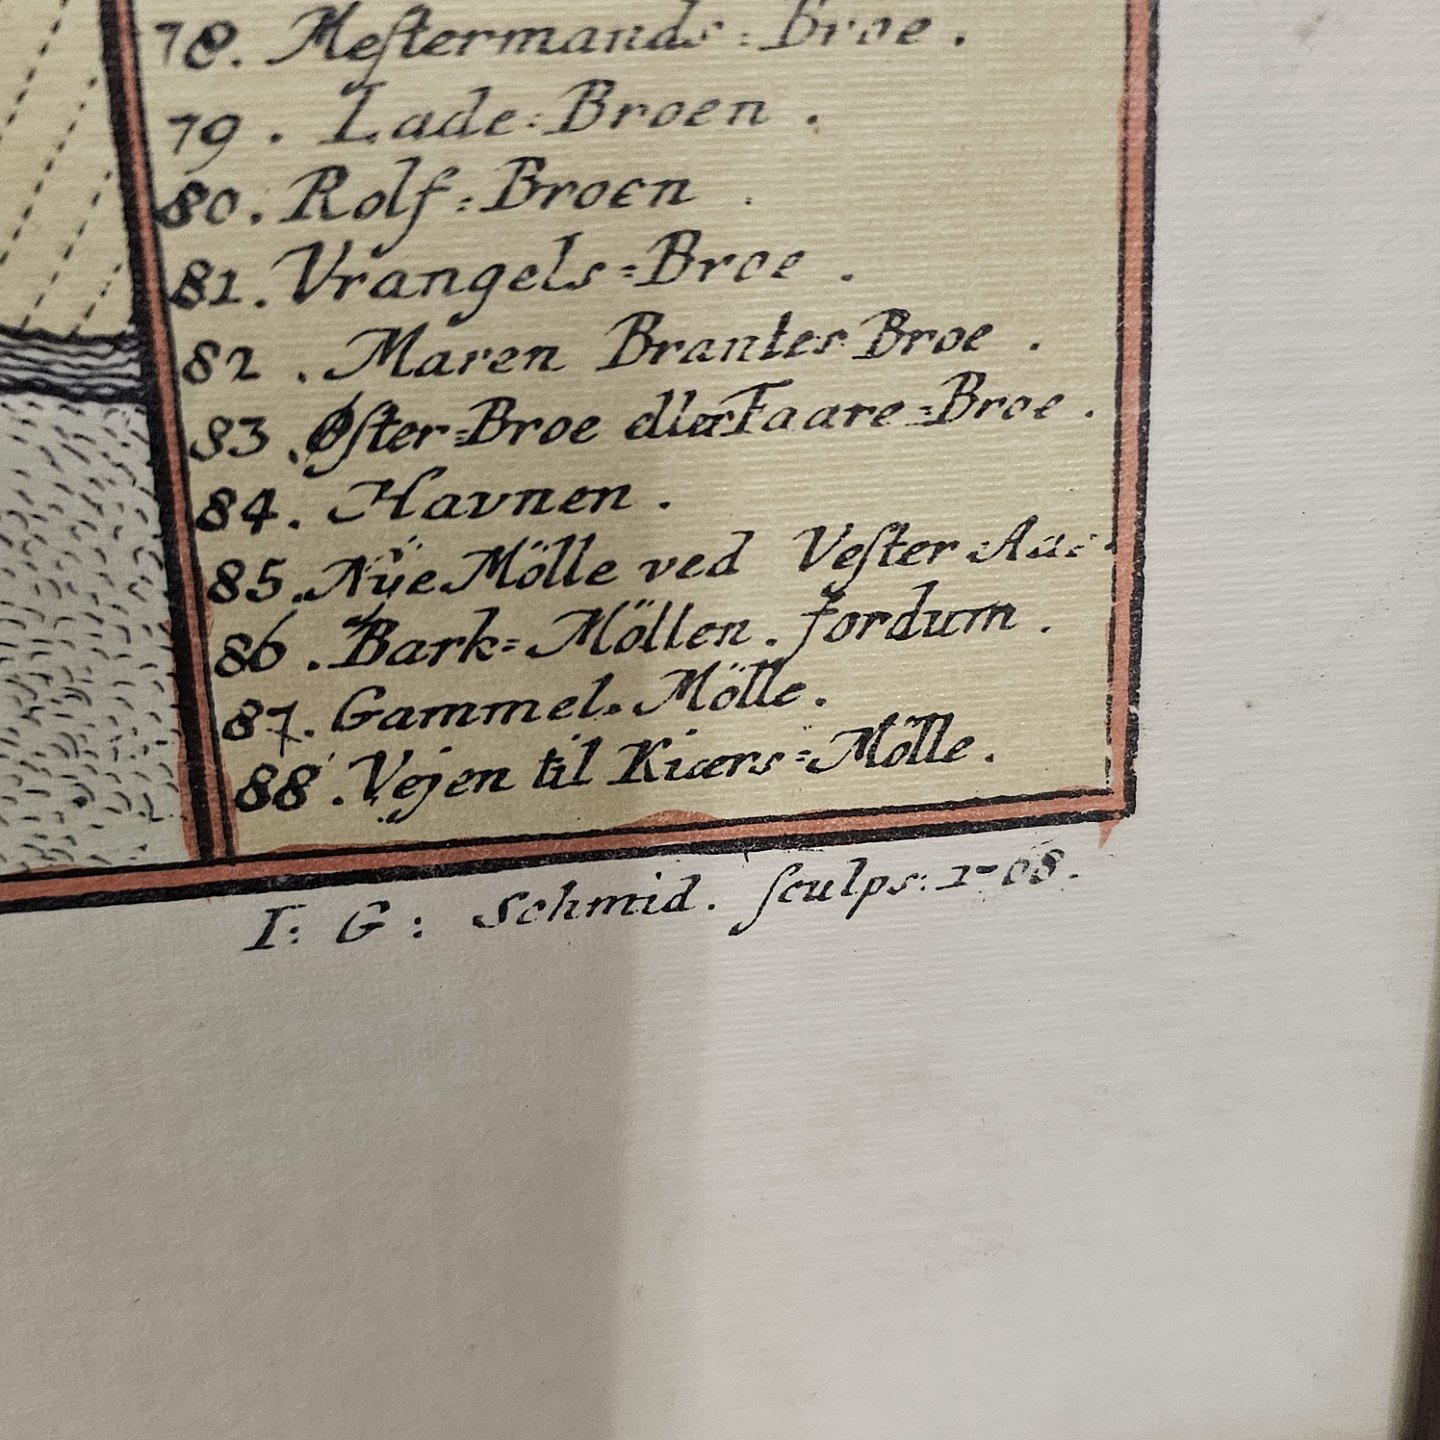 78. Meſtermands=Broe.
79. Lade=Broen.
80. Rolf=Broen.
81. Vrangels=Broe.
82. Maren Brantes Broe.
83. Øſter=Broe eller Faare=Broe.
84. Havnen.
85. Nÿe Mölle ved Veſter
86. Bark=Möllen. fordum.
87. Gammel=Mölle.
88. Vejen til Kiærs=Mölle.
I: G: Schmid. ſculps: